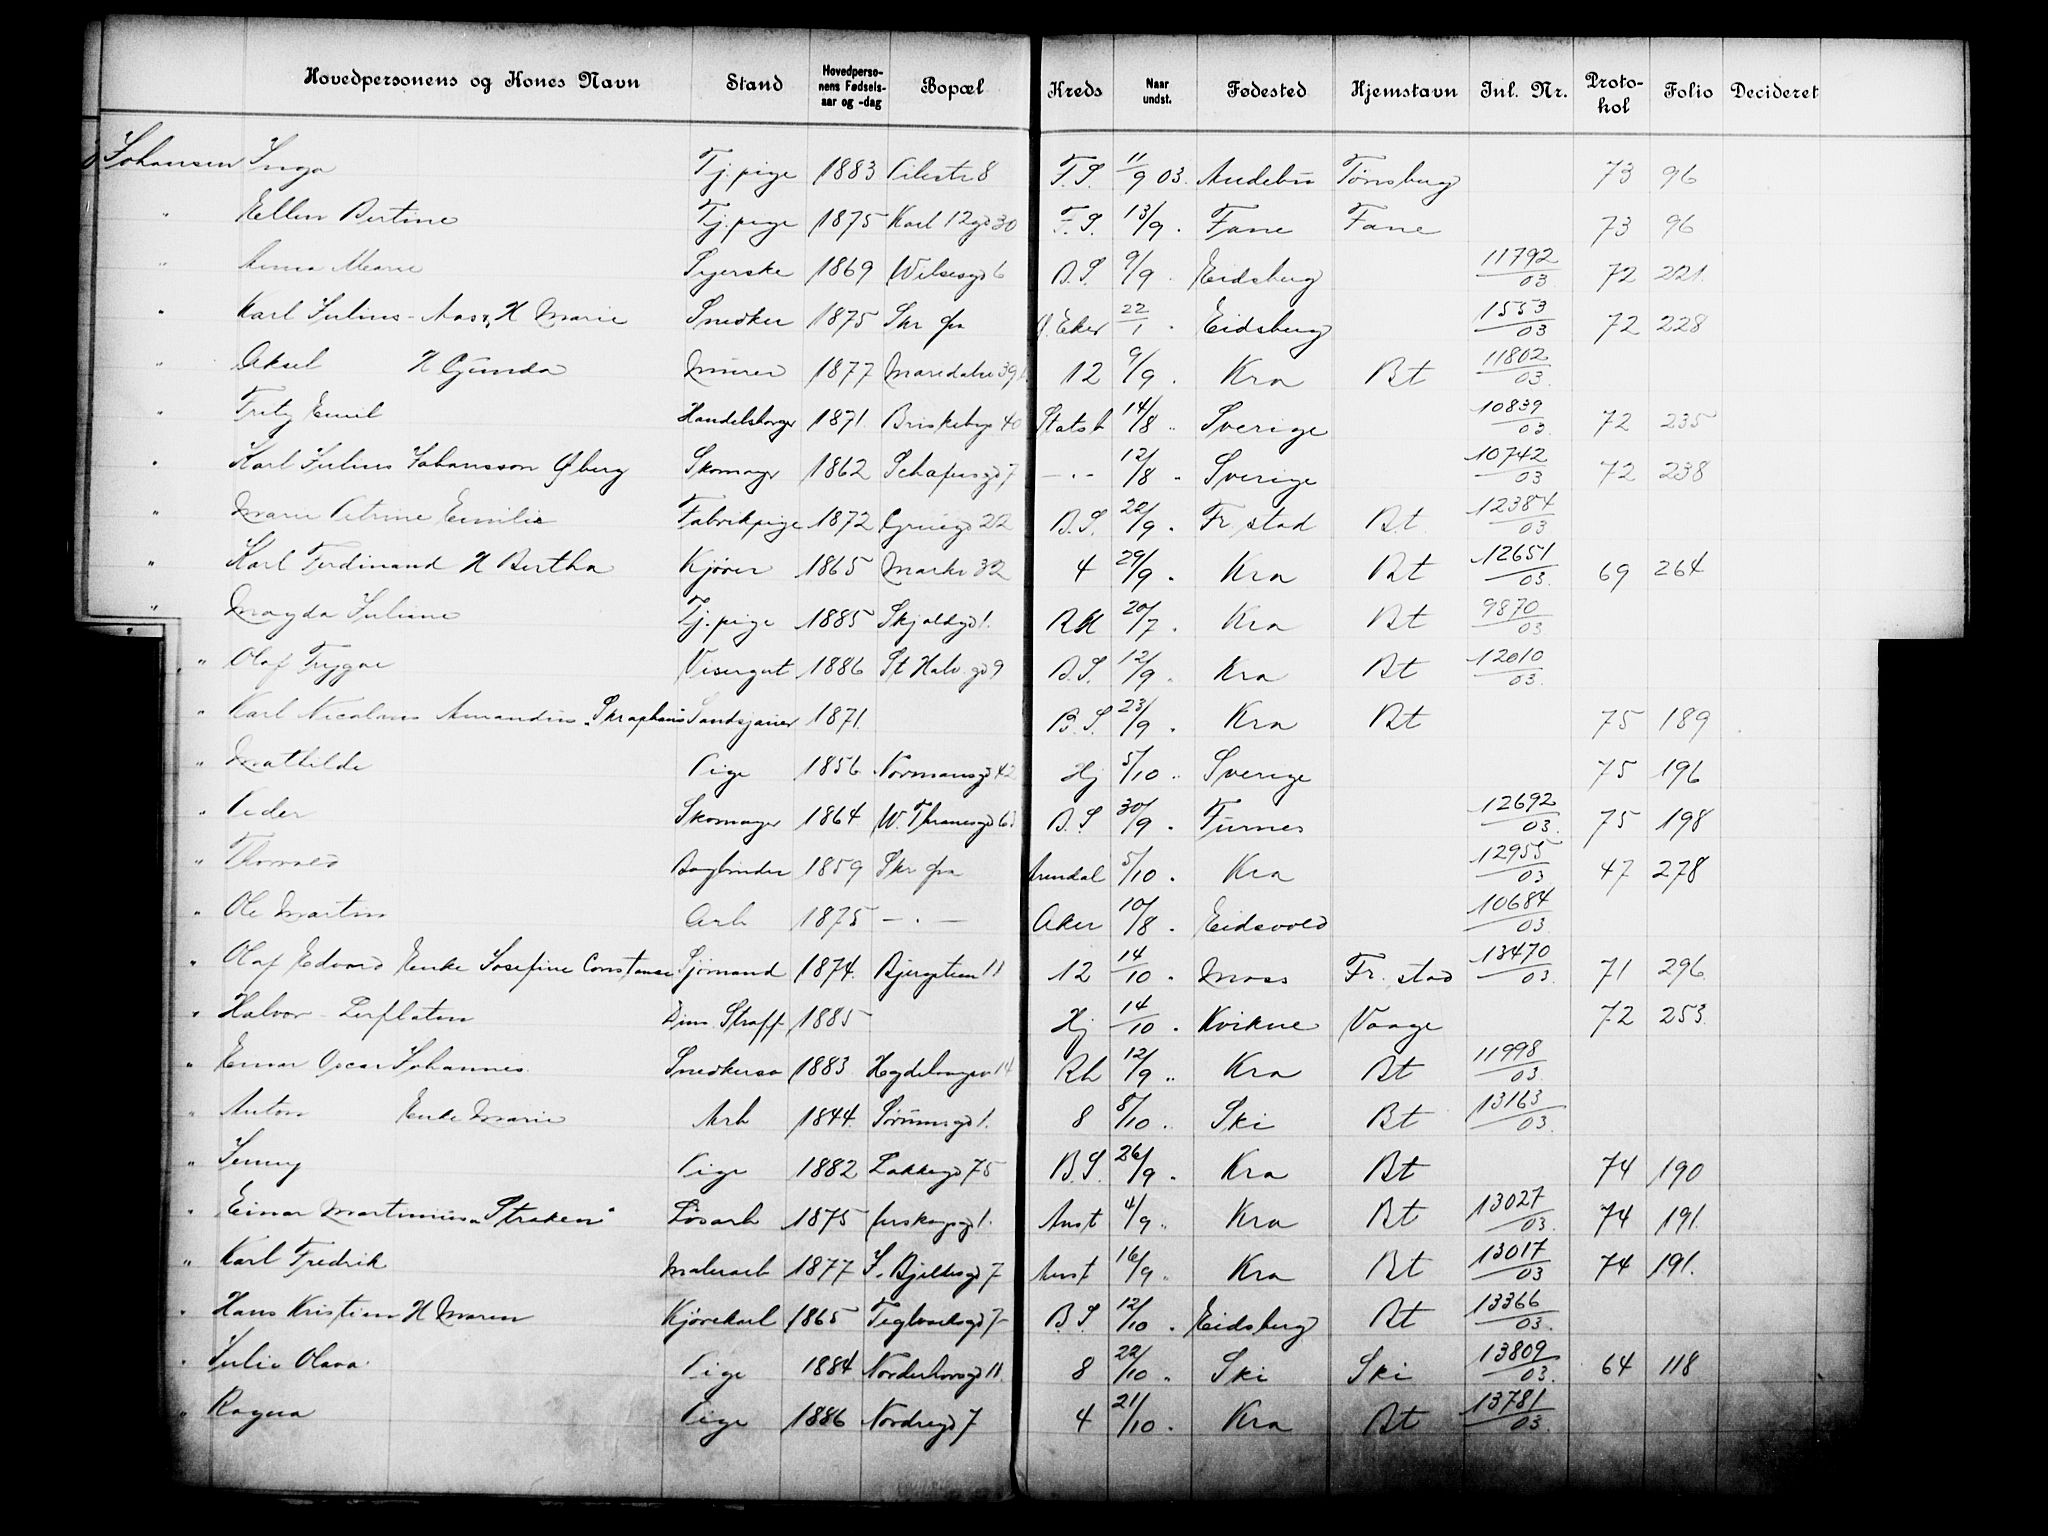 Hovedpersonens og Kones Navn Stand Hovedpersonens Fødselsaar og -dag Bopæl Kreds Naar undst. Fødested Hjemstavn Jnl. Nr. Protokol Folio Decideret
Johansen Inga Tj.pige 1883 Pilestr 8 F.S. 11/9 03. Andebu Tønsberg 73 96
" Ellen Bertine Tj.pige 1875 Karl 12gd 30 F.S. 13/9 . Fane Fane 73 96
" Anna Marie Syerske 1869 Wilsesgd 6 B.S. 9/9 . Eidsberg 11792/03 72 221.
" Karl Julius - Aas, H Marie Snedker 1875 Skr fra Ø. Eker 22/1 . Eidsberg 1553/03 72 228
" Aksel H Gunda Murer 1877 Maridalsv 39 12 9/9 . Kra Bt 11802/03.
" Fritz Emil Handelsborger 1871. Briskebyv 40 Statsb 14/8 " Sverige 10839/03. 72 235
" Karl Julius Johansson Øberg Skomager 1862 Schafersgd 7 — " — 12/8 " Sverige 10742/03 72 238
" Marie Petrine Emilie Fabrikpige 1872 Grünsgd 22 B.S. 22/9 . Fr. stad Bt. 12384/03
" Karl Ferdinand H Bertha Kjører 1865 Markv 32 4 29/9 . Kra Bt 12651/03. 69 264
" Magda Juliane Tj.pige 1885 Skjoldsgd 1. RH 20/7 . Kra Bt 9870/03
" Olaf Trygve Visergut 1886 St Halv. gd 9 B.S. 12/9 " Kra Bt 12010/03.
" Karl Nicolaus Amandus "Skraphans Sandsjauer 1871. B.S. 23/9 . Kra Bt 75 189
" Mathilde Pige 1856 Normannsgd 42 Hj 5/10 " Sverige 75 196
" Peder Skomager 1864. W. Thranesgd 63 B.S. 30/9 . Furnes 12692/03. 75 198
" Thorvald Bogbinder 1859 Skr fra Arendal 5/10 . Kra 12955/03 47 278
" Ole Martin Arb 1875 — " — Aker 10/8 . Eidsvold 10684/03.
" Olaf Edvard Enke Josefine Constanse Sjömand 1874. Bjergstien 11 12 14/10 . Moss Fr. stad 13470/03. 71 296.
" Halvor - Lerflaten Dim. Straff- 1885 Hj 14/10 . Kvikne Vaage 72 253.
" Einar Oscar Johannes. Snedkersv 1883 Hegdehaugsv 14 Rh 12/9 " Kra Bt 11998/03.
" Anton Enke Marie Arb 1844. Sörumsgd 1. 8 8/10 . Ski Bt 13163/03.
" Jenny Pige 1882 Lakkegd 75 B.S. 26/9 . Kra Bt 74 190
" Einar Martinius "Straken" Løsarb 1875 1. Anst 4/9 " Kra Bt 13027/03. 74 191.
" Karl Fredrik Malerarb 1877 J. Bjelkesgd 7 Anst 16/9 " Kra Bt 13017/03 74 191.
" Hans Kristian H Maren Kjørekarl 1865 Teglverksgd 7 B.S. 12/10 . Eidsberg Bt 13366/03.
" Julie Olava. Pige 1884 Norderhovsgd 11. 8 22/10 " Ski Ski 13809/03. 64 118
" Ragna Pige 1886 Nordregd 7 4 21/10 . Kra Bt 13781/03.